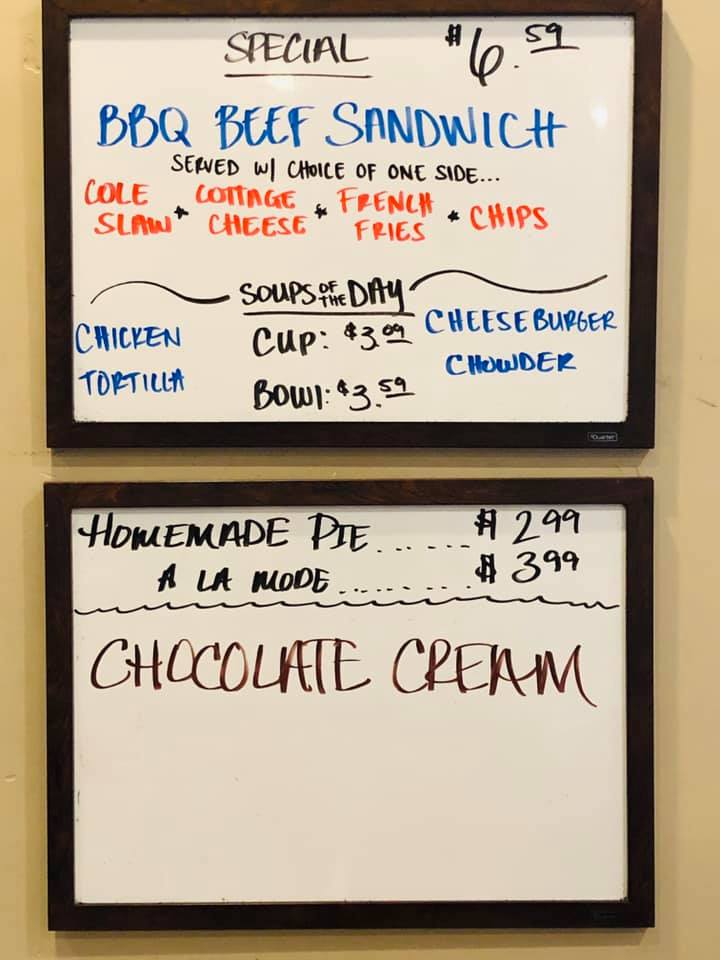 SPECIAL $6.59
BBQ BEEF SANDWICH
SERVED W/ CHOICE OF ONE SIDE...
COLE SLAW * COTTAGE CHEESE * FRENCH FRIES * CHIPS
SOUPS OF THE DAY
CHICKEN TORTILLA
CUP: $3.09
BOWl: $3.59
CHEESEBURGER CHOWDER
Quartet
HOMEMADE PIE......$2.99
A LA MODE........$3.99
CHOCOLATE CREAM